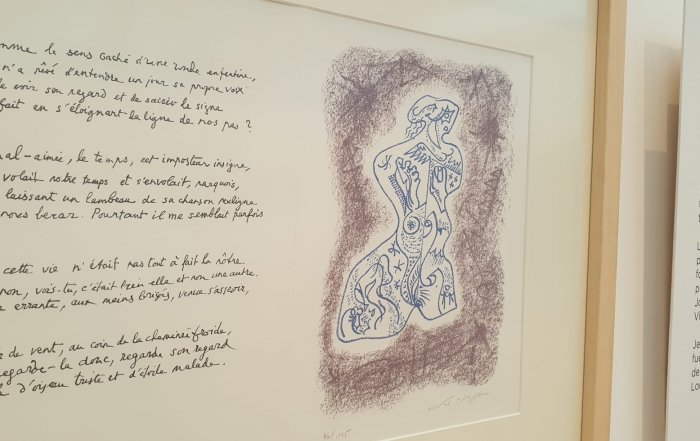 mme le sens caché d'une ronde enfantine,
n'a rêvé d'entendre un jour sa propre voix
voir son regard et de saisir le signe
fait en s'éloignant la ligne de nos pas ?
al-aimée, le temps, cet imposteur insigne,
volait notre temps et s'envolait, narquois,
laissant un lambeau de sa chanson maligne
nous berar. Pourtant il me semblait parfois
cette vie n'était pas tout à fait la nôtre.
non, vois-tu, c'était bien elle et non une autre.
errante, aux mains rouges, venue s'asseoir,
de vent, au coin de la cheminée froide,
egarde-la donc, regarde son regard
d'oiseau triste et d'étoile malade.